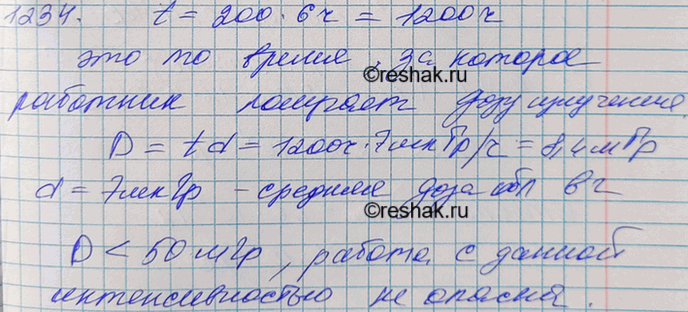 1234. t = 200 · 6 ч = 1200 ч
это то время, за которое
©reshak.ru
работник получает дозу излучения.
D = td = 1200 ч · 7 мкГр/ч = 8,4 мГр
d = 7 мкГр – средняя доза обл в ч
©reshak.ru
D < 50 мГр, работа с данной
интенсивностью не опасна.